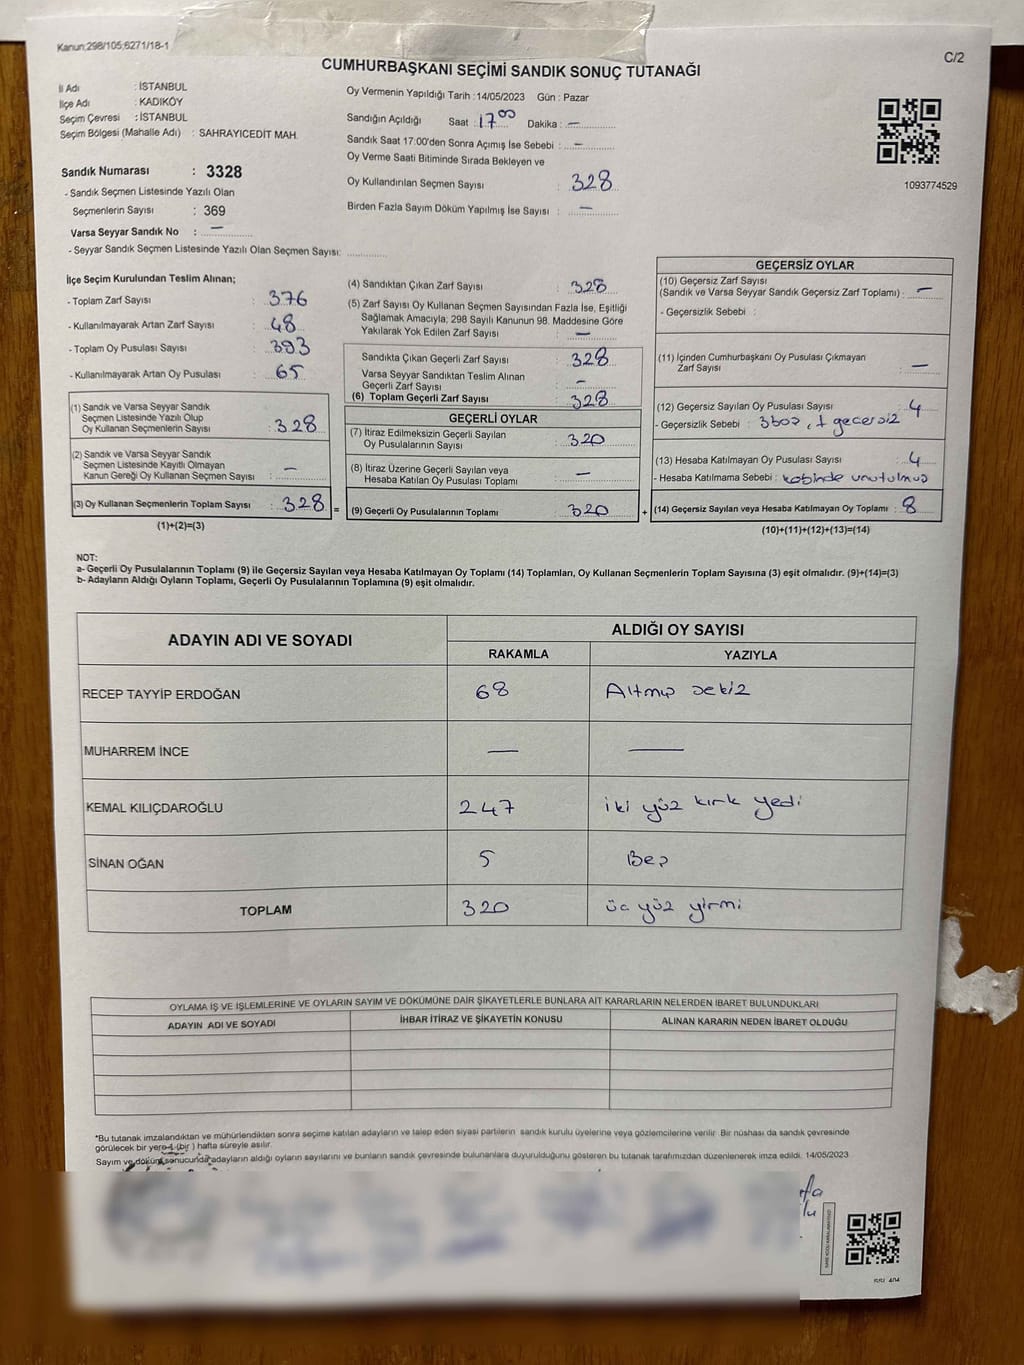 Kanun;298/105;6271/18-1
C/2
CUMHURBAŞKANI SEÇİMİ SANDIK SONUÇ TUTANAĞI
İl Adı : İSTANBUL
İlçe Adı : KADIKÖY
Seçim Çevresi : İSTANBUL
Seçim Bölgesi (Mahalle Adı) : SAHRAYICEDİT MAH.
Sandık Numarası : 3328
- Sandık Seçmen Listesinde Yazılı Olan
Seçmenlerin Sayısı : 369
Varsa Seyyar Sandık No : —
- Seyyar Sandık Seçmen Listesinde Yazılı Olan Seçmen Sayısı:
Oy Vermenin Yapıldığı Tarih :14/05/2023 Gün : Pazar
Sandığın Açıldığı Saat : 17 00 Dakika : —
Sandık Saat 17:00'den Sonra Açımış İse Sebebi : —
Oy Verme Saati Bitiminde Sırada Bekleyen ve
Oy Kullandırılan Seçmen Sayısı : 328
Birden Fazla Sayım Döküm Yapılmış İse Sayısı : —
1093774529
İlçe Seçim Kurulundan Teslim Alınan;
- Toplam Zarf Sayısı : 376
- Kullanılmayarak Artan Zarf Sayısı : 48
- Toplam Oy Pusulası Sayısı : 393
- Kullanılmayarak Artan Oy Pusulası : 65
(1) Sandık ve Varsa Seyyar Sandık
Seçmen Listesinde Yazılı Olup
Oy Kullanan Seçmenlerin Sayısı : 328
(2) Sandık ve Varsa Seyyar Sandık
Seçmen Listesinde Kayıtlı Olmayan
Kanun Gereği Oy Kullanan Seçmen Sayısı : —
(3) Oy Kullanan Seçmenlerin Toplam Sayısı : 328 =
(1)+(2)=(3)
(4) Sandıktan Çıkan Zarf Sayısı : 328
(5) Zarf Sayısı Oy Kullanan Seçmen Sayısından Fazla İse, Eşitliği
Sağlamak Amacıyla; 298 Sayılı Kanunun 98. Maddesine Göre
Yakılarak Yok Edilen Zarf Sayısı : —
Sandıkta Çıkan Geçerli Zarf Sayısı : 328
Varsa Seyyar Sandıktan Teslim Alınan
Geçerli Zarf Sayısı : —
(6) Toplam Geçerli Zarf Sayısı : 328
GEÇERLİ OYLAR
(7) İtiraz Edilmeksizin Geçerli Sayılan
Oy Pusulalarının Sayısı : 320
(8) İtiraz Üzerine Geçerli Sayılan veya
Hesaba Katılan Oy Pusulası Toplamı : —
(9) Geçerli Oy Pusulalarının Toplamı : 320 +
GEÇERSİZ OYLAR
(10) Geçersiz Zarf Sayısı
(Sandık ve Varsa Seyyar Sandık Geçersiz Zarf Toplamı) : —
- Geçersizlik Sebebi :
(11) İçinden Cumhurbaşkanı Oy Pusulası Çıkmayan
Zarf Sayısı : —
(12) Geçersiz Sayılan Oy Pusulası Sayısı : 4
- Geçersizlik Sebebi : 3 boş, 1 geçersiz
(13) Hesaba Katılmayan Oy Pusulası Sayısı : 4
- Hesaba Katılmama Sebebi : kabinde unutulmuş
(14) Geçersiz Sayılan veya Hesaba Katılmayan Oy Toplamı : 8
(10)+(11)+(12)+(13)=(14)
NOT:
a- Geçerli Oy Pusulalarının Toplamı (9) ile Geçersiz Sayılan veya Hesaba Katılmayan Oy Toplamı (14) Toplamları, Oy Kullanan Seçmenlerin Toplam Sayısına (3) eşit olmalıdır. (9)+(14)=(3)
b- Adayların Aldığı Oyların Toplamı, Geçerli Oy Pusulalarının Toplamına (9) eşit olmalıdır.
ADAYIN ADI VE SOYADI ALDIĞI OY SAYISI
RAKAMLA YAZIYLA
RECEP TAYYİP ERDOĞAN 68 Altmış sekiz
MUHARREM İNCE — —
KEMAL KILIÇDAROĞLU 247 iki yüz kırk yedi
SİNAN OĞAN 5 Beş
TOPLAM 320 üç yüz yirmi
OYLAMA İŞ VE İŞLEMLERİNE VE OYLARIN SAYIM VE DÖKÜMÜNE DAİR ŞİKAYETLERLE BUNLARA AİT KARARLARIN NELERDEN İBARET BULUNDUKLARI
ADAYIN ADI VE SOYADI İHBAR İTİRAZ VE ŞİKAYETİN KONUSU ALINAN KARARIN NEDEN İBARET OLDUĞU
*Bu tutanak imzalandıktan ve mühürlendikten sonra seçime katılan adayların ve talep eden siyasi partilerin sandık kurulu üyelerine veya gözlemcilerine verilir. Bir nüshası da sandık çevresinde
görülecek bir yere 1 (bir) hafta süreyle asılır.
Sayım ve döküm sonucunda adayların aldığı oyların sayılarını ve bunların sandık çevresinde bulunanlara duyurulduğunu gösteren bu tutanak tarafımızdan düzenlenerek imza edildi. 14/05/2023